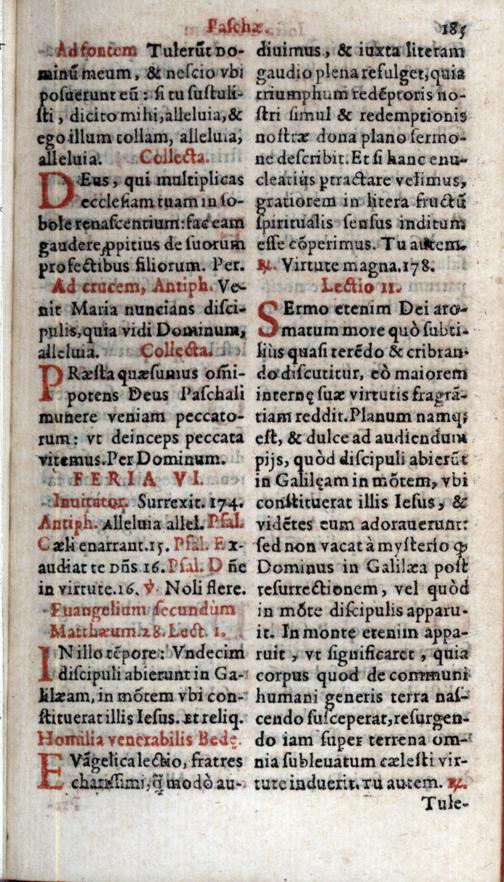 Paschæ. 185
Ad fontem Tulerūt Do-
minū meum, & nescio vbi
posuerunt eū: si tu sustuli-
sti, dicito mihi, alleluia, &
ego illum tollam, alleluia,
alleluia. Collecta.
DEus, qui multiplicas
ecclesiam tuam in so-
bole renascentium: fac eam
gaudere ꝓpitius de suorum
profectibus filiorum. Per.
Ad crucem, Antiph. Ve-
nit Maria nuncians disci-
pulis, quia vidi Dominum,
alleluia. Collecta.
PRæsta quæsumus omni-
potens Deus Paschali
munere veniam peccato-
rum: vt deinceps peccata
vitemus. Per Dominum.
FERIA VI.
Inuitator. Surrexit. 174.
Antiph. Alleluia allel. Psal.
Cæli enarrant. 15. Psal. Ex-
audiat te Dn̄s 16. Psal. Dn̄e
in virtute. 16. ℣. Noli flere.
Euangelium secundùm
Matthæum. 28. Lect. 1.
IN illo tēpore: Vndecim
discipuli abierunt in Ga-
lilæam, in mōtem vbi con-
stituerat illis Iesus. Et reliq.
Homilia venerabilis Bedę.
EVāgelica lectio, fratres
charissimi, q̄ modò au-
diuimus, & iuxta literam
gaudio plena refulget, quia
triumphum redēptoris no-
stri simul & redemptionis
nostræ dona plano sermo-
ne describit. Et si hanc enu-
cleatiùs ptractare velimus,
gratiorem in litera fructū
spiritualis sensus inditum
esse cōperimus. Tu autem.
℟. Virtute magna. 178.
Lectio II.
SErmo etenim Dei aro-
matum more quò subti-
lius quasi terēdo & cribran-
do discutitur, eò maiorem
internę suæ virtutis fragrā-
tiam reddit. Planum namq;
est, & dulce ad audiendum
pijs, quòd discipuli abierūt
in Galilęam in mōtem, vbi
constituerat illis Iesus, &
vidētes eum adorauerunt:
sed non vacat à mysterio ꝙ
Dominus in Galilæa post
resurrectionem, vel quòd
in mōte discipulis apparu-
it. In monte etenim appa-
ruit, vt significaret, quia
corpus quod de communi
humani generis terra nas-
cendo susceperat, resurgen-
do iam super terrena om-
nia subleuatum cælesti vir-
tute induerit. Tu autem. ℟.
Tule-